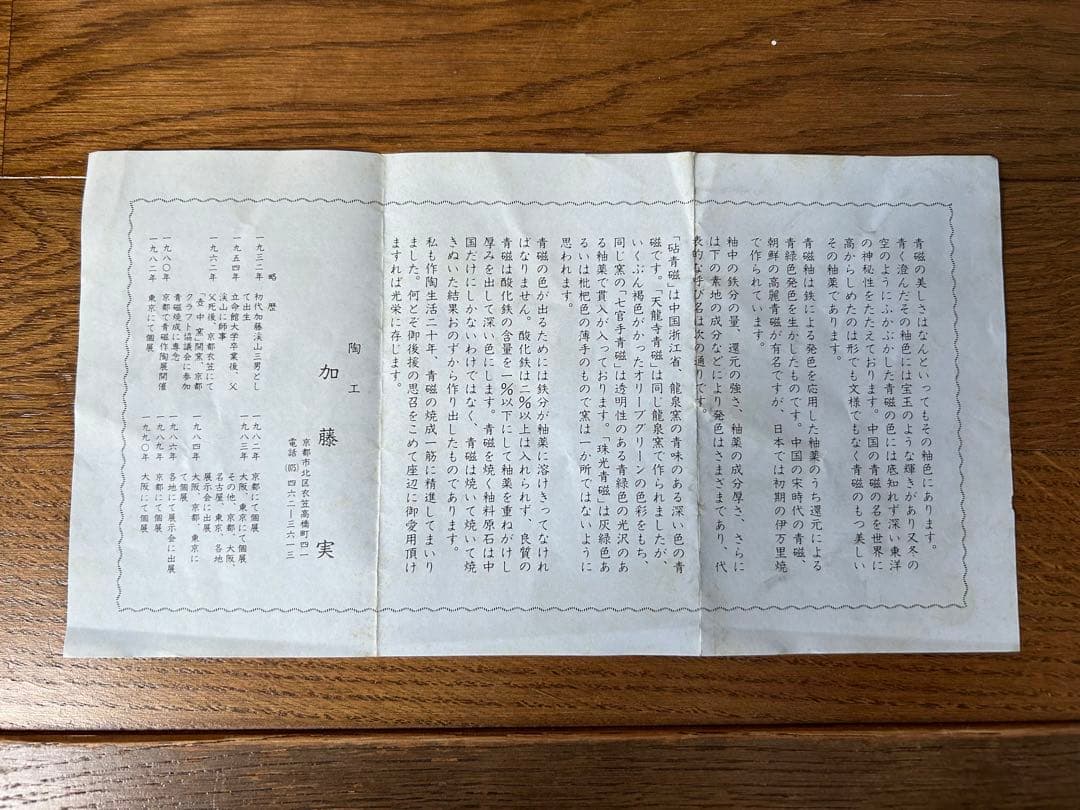 青磁の美しさはなんといってもその釉色にあります。
青く澄んだその釉色には宝玉のような輝きがあり又冬の
空のようにふかぶかした青磁の色には底知れず深い東洋
の神秘性をたたえております。中国の青磁の名を世界に
高からしめたのは形でも文様でもなく青磁のもつ美しい
その釉薬であります。
青磁釉は鉄による発色を応用した釉薬のうち還元による
青緑色発色を生かしたものです。中国の宋時代の青磁、
朝鮮の高麗青磁が有名ですが、日本では初期の伊万里焼
で作られています。
釉中の鉄分の量、還元の強さ、釉薬の成分厚さ、さらに
は下の素地の成分などにより発色はさまざまであり、代
表的な呼び名は次の通りです。
「砧青磁」は中国浙江省、龍泉窯の青味のある深い色の青
磁です。「天龍寺青磁」は同じ龍泉窯で作られましたが、
いくぶん褐色がかったオリーブグリーンの色彩をもち、
同じ窯の「七官手青磁」は透明性のある青緑色の光沢のあ
る釉薬で貫入が入っております。「珠光青磁」は灰緑色あ
るいは枇杷色の薄手のもので窯は一か所ではないように
思われます。
青磁の色が出るためには鉄分が釉薬に溶けきってなけれ
ばなりません。酸化鉄は二%以上は入れられず、良質の
青磁は酸化鉄の含量を一%以下にして釉薬を重ねがけし
厚みを出して深い色にします。青磁を焼く釉料原石は中
国だけにしかないわけではなく、青磁は焼いて焼いて焼
きぬいた結果おのずから作り出したものであります。
私も作陶生活二十年、青磁の焼成一筋に精進してまいり
ました。何とぞ御後援の思召をこめて座辺に御愛用頂け
ますれば光栄に存じます。
陶工 加藤実
京都市北区衣笠高橋町四一
電話(075)四六二―三六一三
略歴
一九三二年 初代加藤渓山三男とし
て出生
一九五四年 立命館大学卒業後、父
渓山に師事
一九六二年 父死後、京都衣笠にて
「壺中窯」開窯、京都
クラフト協議会に参加
青磁焼成に専念
一九八〇年 京都で青磁作陶展開催
一九八二年 東京にて個展
一九八二年 京都にて個展
一九八三年 大阪、東京にて個展
その他、京都、大阪、
名古屋、東京、各地
展示会に出展
一九八四年 大阪、京都、東京に
て個展
一九八六年 各地にて展示会に出展
一九八九年 東京にて個展
一九九〇年 大阪にて個展